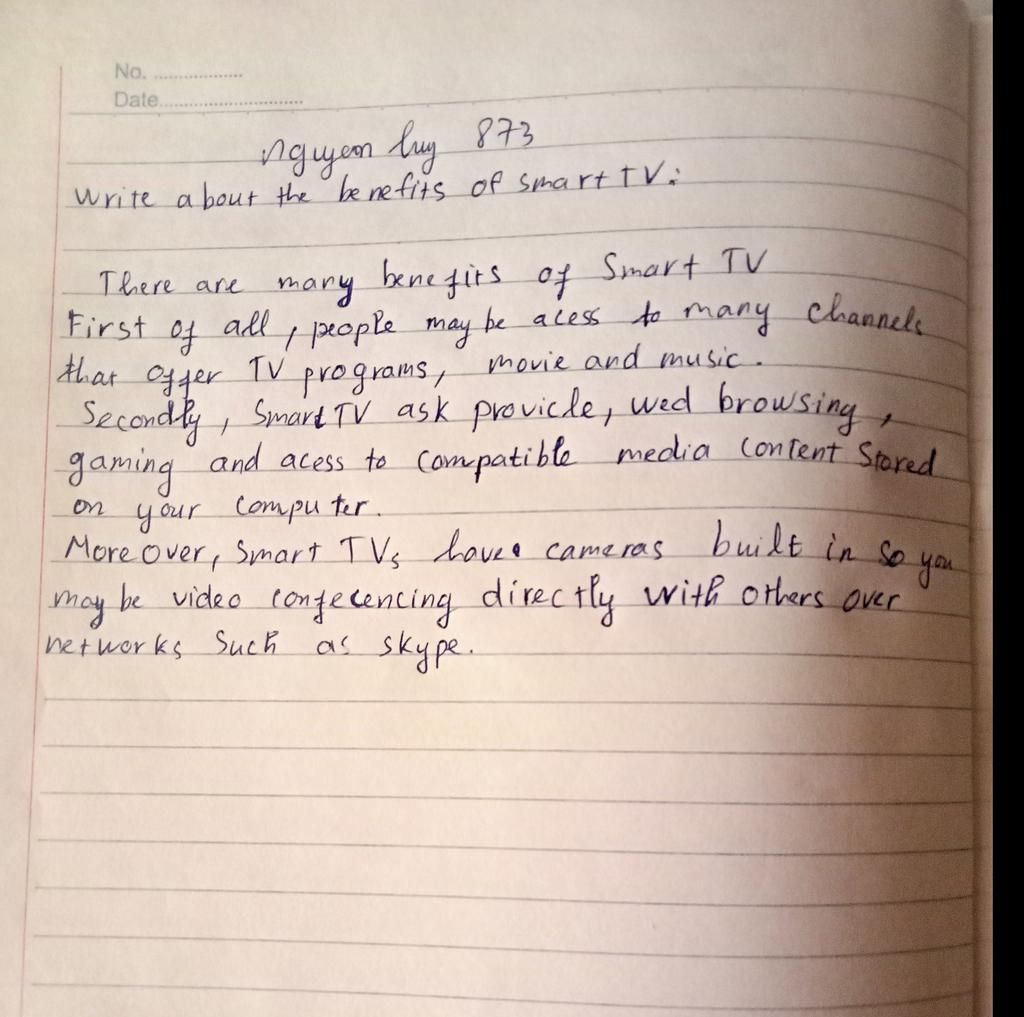 No. ..................
Date.............................
nguyen huy 873
Write about the benefits of smart TV:
There are many benefits of Smart TV
First of all, people may be acess to many channels
that offer TV programs, movie and music.
Secondly, Smart TV ask provicle, wed browsing,
gaming and acess to compatible media content stored
on your computer.
More over, Smart TVs have cameras built in so you
may be video confecencing directly with others over
networks such as skype.